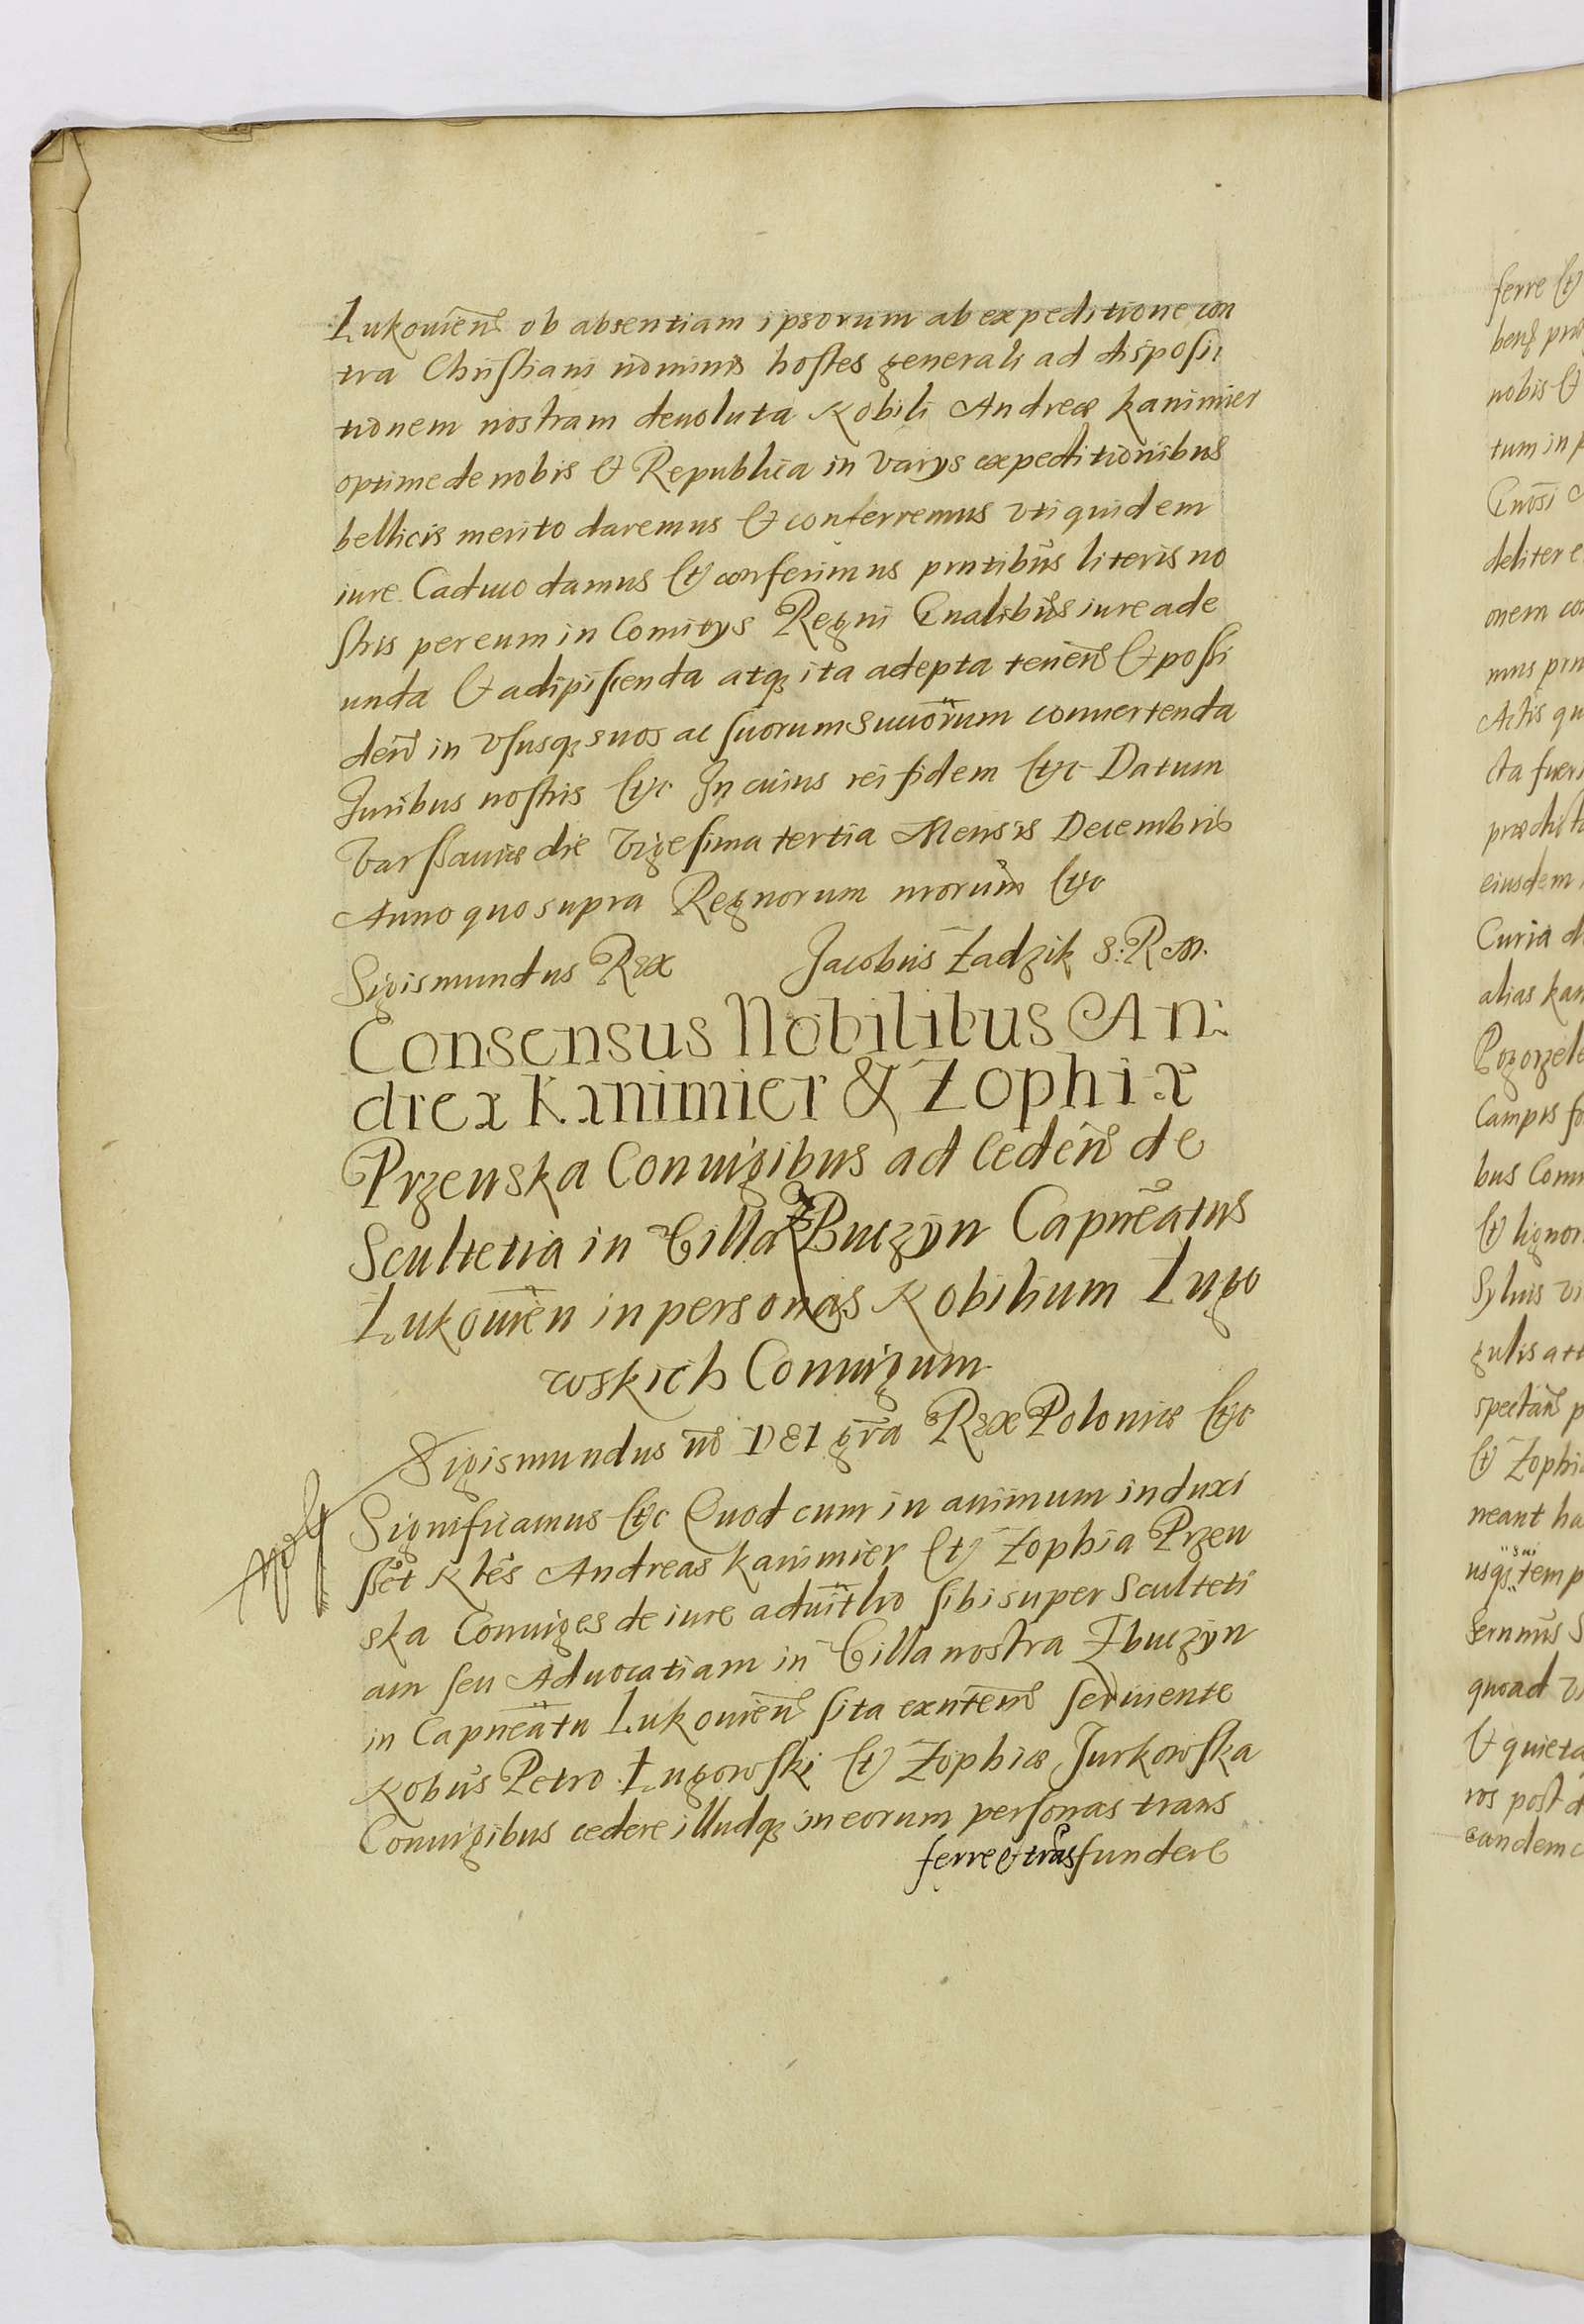 Łukouien̄ ob absentiam ipsorum ab expeditione con
tra Christiani nominis hostes generali ad disposi
tionem nostram deuoluta Nobili Andreæ Kanimier
optime de nobis & Republica in varys expeditionibus
bellicis merito daremus & conferremus vti quidem
iure Caduco damus et conferimus pntibus literis no
stris per eum in Comitys Regni Gnalibus iure ade
unda & adipiscenda atq ita adepta tenen̄ & possi
den̄ in vsusq suos ac suorum Succorum conuertenda
Juribus nostris etc In cuius rei fidem etc Datum
Varssauiæ die Vigesima tertia Mensis Decembris
Anno quo supra Regnorum nrorum etc
Sigismundus Rex Jacobus Zadzik S: R M.
Consensus Nobilibus An:
dreæ Kanimier & Zophiæ
Przeuska Coniugibus ad ceden̄ de
Scultetia in Villa Zbuczyn Capneatus
Łukouien in personas Nobilium Ługo
wskich Coniugum
Sigismundus III DEI gra Rex Poloniæ etc
Significamus etc Quod cum in animum induxi
sset Nles Andreas Kanimier et Zophia Przeu
ska Coniuges de iure aduitlio sibi super Sculteti
am seu Aduocatiam in Villa nostra Zbuczyn
in Capneatu Łukouien̄ sita exnten̄ seruiente
Nobus Petro Ługowski et Zophiæ Jurkowska
Coniugibus cedere illudq in eorum personas trans
ferre & trasfundere
ferre et
nobis &
tum in p
deliter e
onem con
mus pn
Actis qu
cta fuer
eiusdem
Curia d
alias kan
Pogorzele
Campis
bus Coni
et lignor
Syluis vi
gulis att
spectan̄ p
et Zophi
neant ha
sui
usq temp
quoad vi
& quieta
ros post d
eandem c